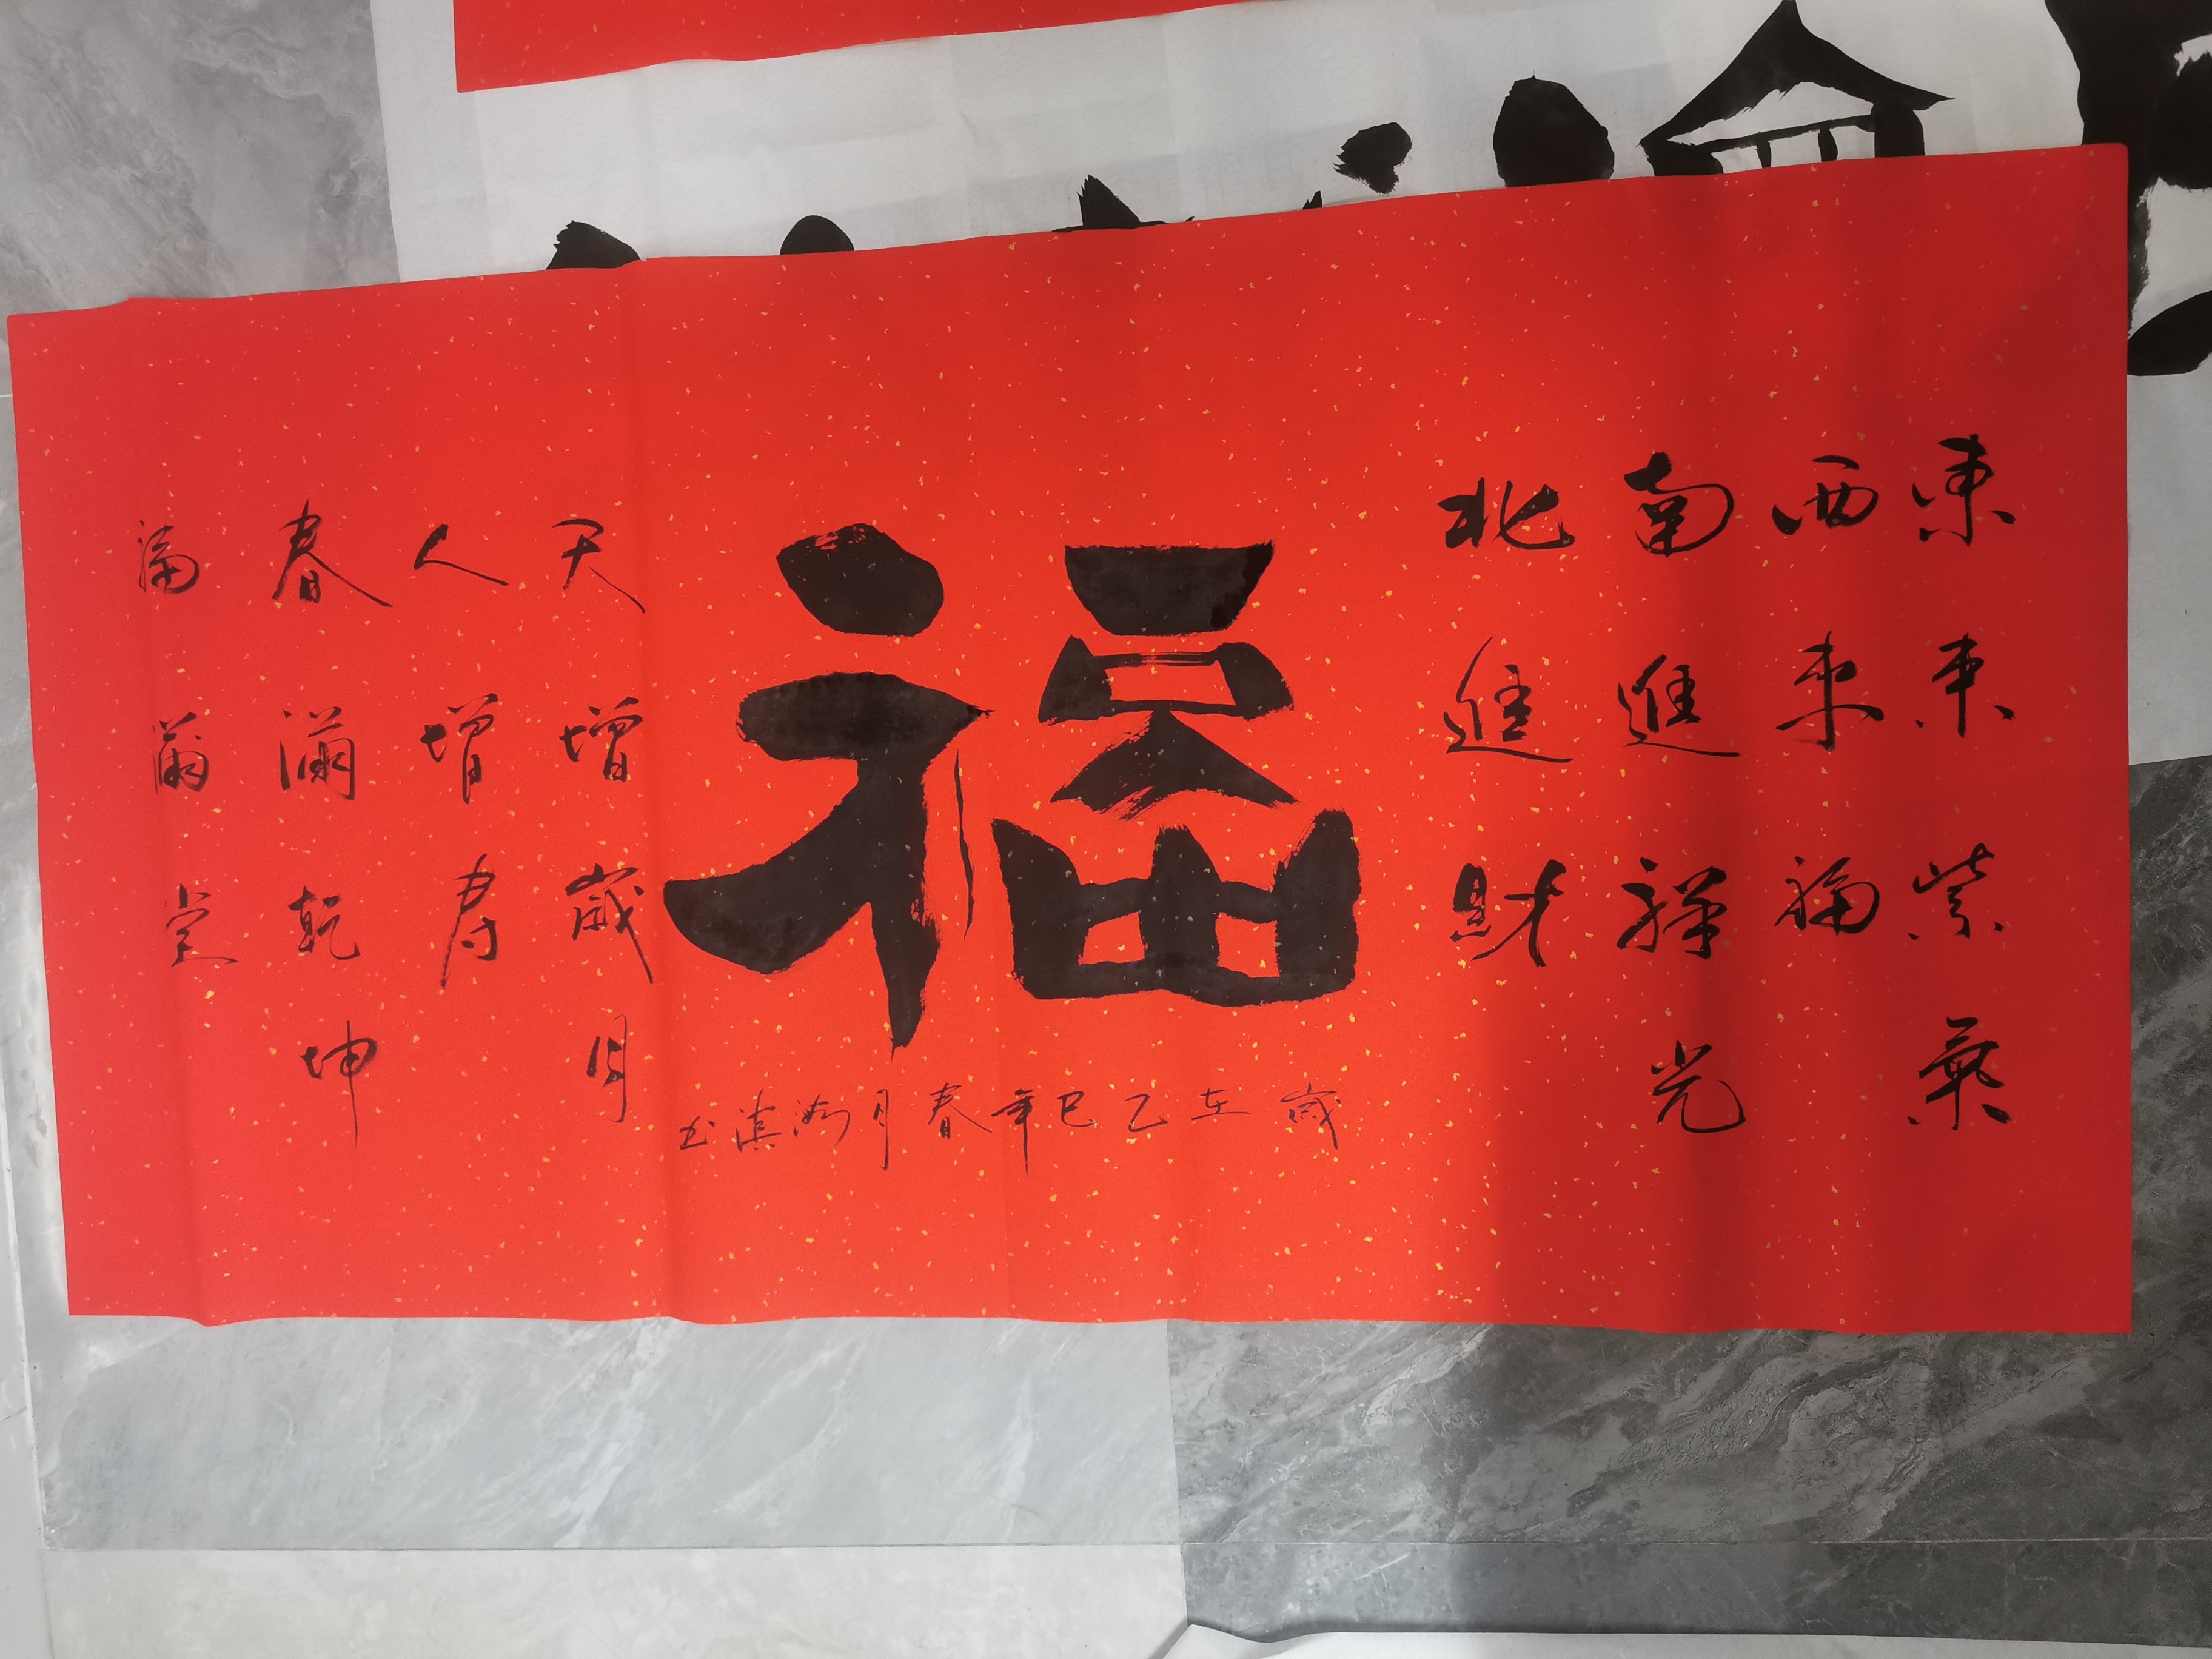 東來紫氣
西來福
南進祥光
北進財
福
天增歲月
人增壽
春滿乾坤
福滿堂
歲在乙巳年春月
書